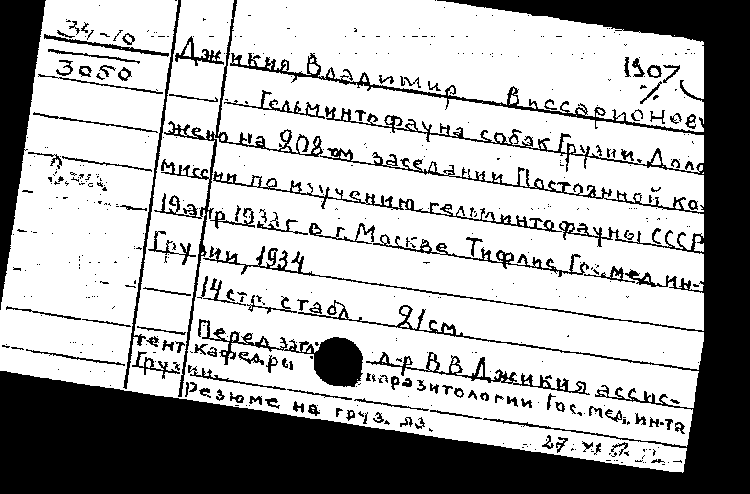 34-10
3050
1907
Джикия, Владимир Виссарионов
... Гельминтофауна собак Грузии. Доло
жено на 208-ом заседании Постоянной ко
миссии по изучению гельминтофауны СССР
19 апр 1933 г. в г. Москве. Тифлис, Гос. мед. ин-т
Грузии, 1934.
14 стр., с табл. 21 см.
Перед загл д-р В В Джикия ассис-
тент кафедры паразитологии Гос. мед. ин-та
Грузии.
Резюме на груз. яз.
27.